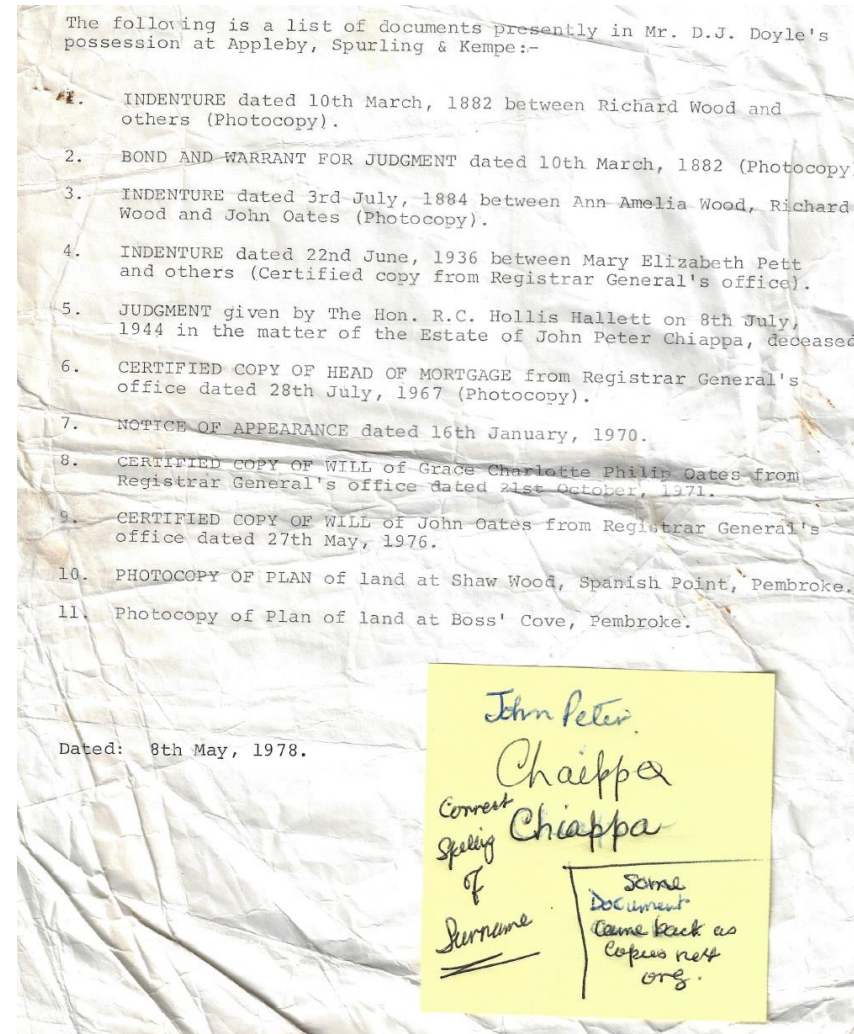 The following is a list of documents presently in Mr. D.J. Doyle's
possession at Appleby, Spurling & Kempe:-
1. INDENTURE dated 10th March, 1882 between Richard Wood and
others (Photocopy).
2. BOND AND WARRANT FOR JUDGMENT dated 10th March, 1882 (Photocopy)
3. INDENTURE dated 3rd July, 1884 between Ann Amelia Wood, Richard
Wood and John Oates (Photocopy).
4. INDENTURE dated 22nd June, 1936 between Mary Elizabeth Pett
and others (Certified copy from Registrar General's office).
5. JUDGMENT given by The Hon. R.C. Hollis Hallett on 8th July,
1944 in the matter of the Estate of John Peter Chiappa, deceased
6. CERTIFIED COPY OF HEAD OF MORTGAGE from Registrar General's
office dated 28th July, 1967 (Photocopy).
7. NOTICE OF APPEARANCE dated 16th January, 1970.
8. CERTIFIED COPY OF WILL of Grace Charlotte Philip Oates from
Registrar General's office dated 21st October, 1971.
9. CERTIFIED COPY OF WILL of John Oates from Registrar General's
office dated 27th May, 1976.
10. PHOTOCOPY OF PLAN of land at Shaw Wood, Spanish Point, Pembroke.
11. Photocopy of Plan of land at Boss' Cove, Pembroke.
Dated: 8th May, 1978.
John Peter
Chaippa
Chiappa
Correct
Spelling
of
Surname
Some
Document
Came back as
Copies not
org.